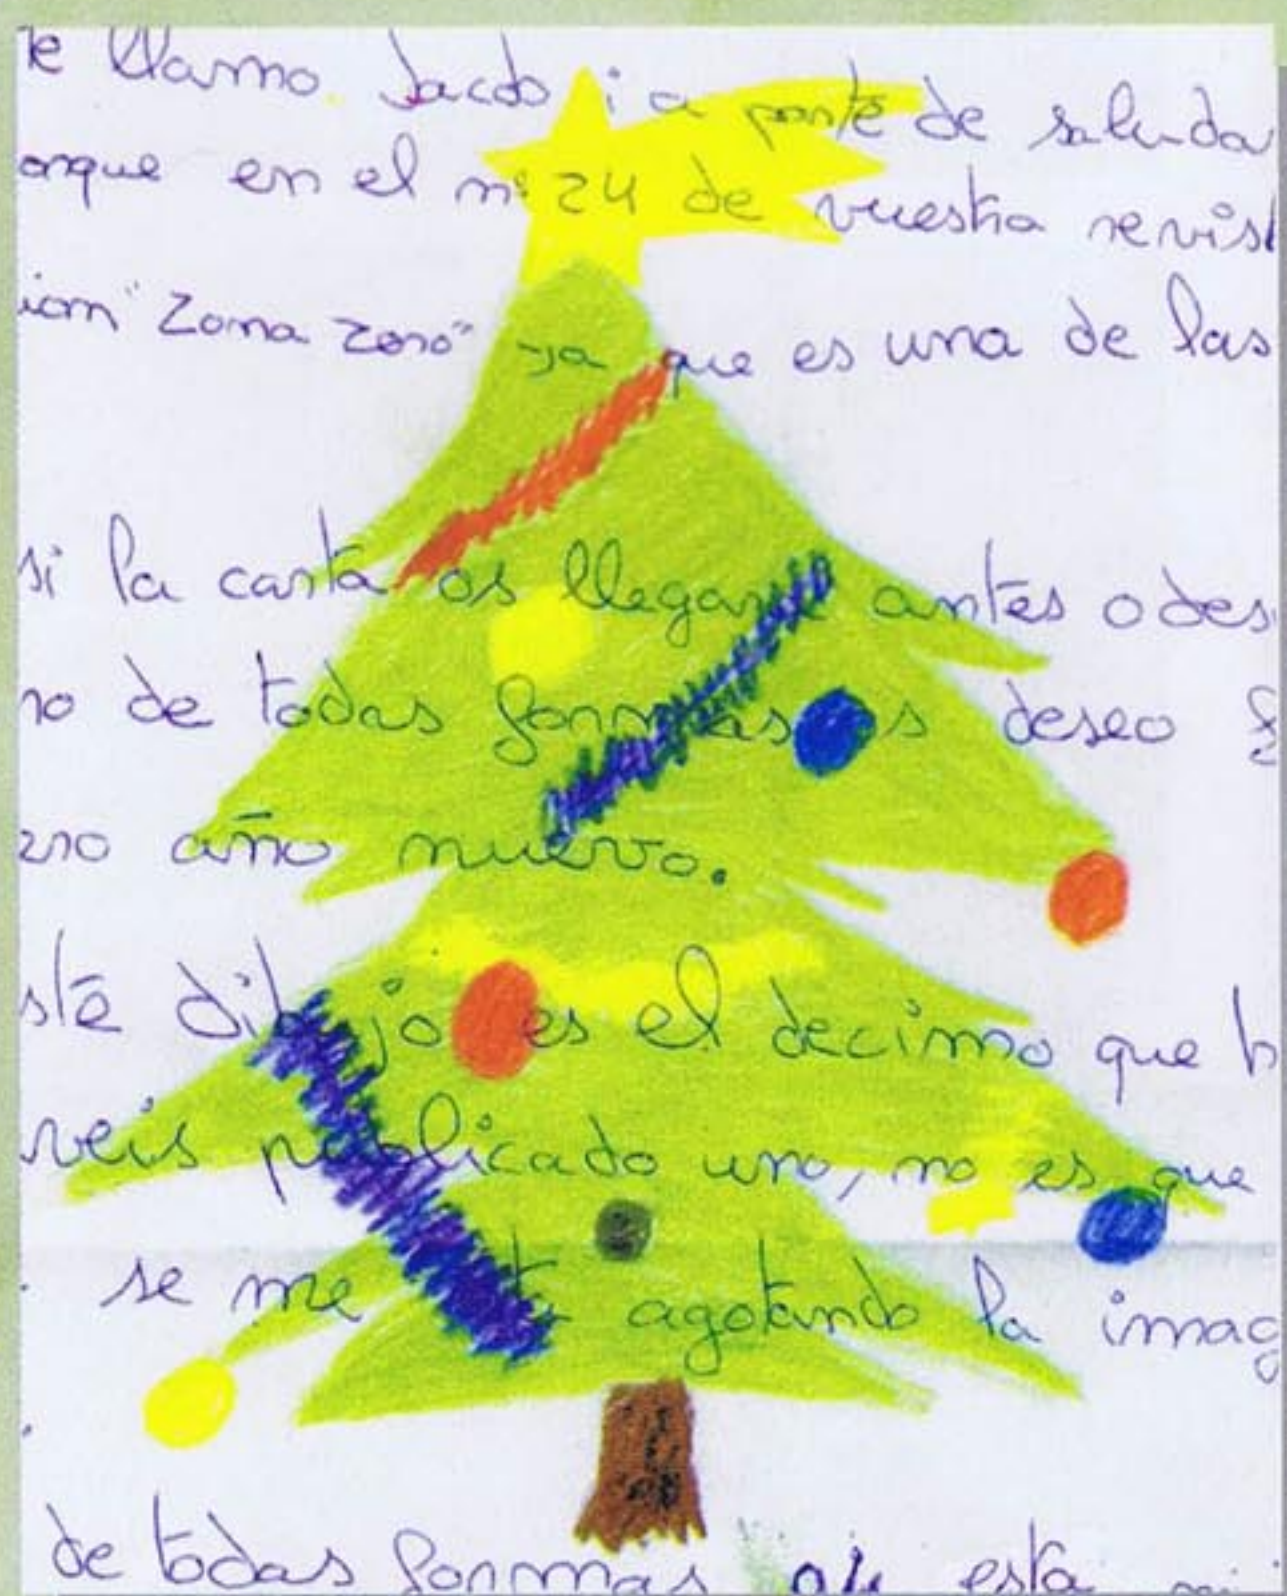 te llamo Jacob i a parte de saludar
orque en el nº 24 de vuestra revist
ion "Zona Zero" ya que es una de las
si la carta os llegara antes o des
ro de todas formas os deseo
ero año nuevo.
ste dibujo es el decimo que h
veis publicado uno, no es que
se me agotando la imag
de todas formas esta